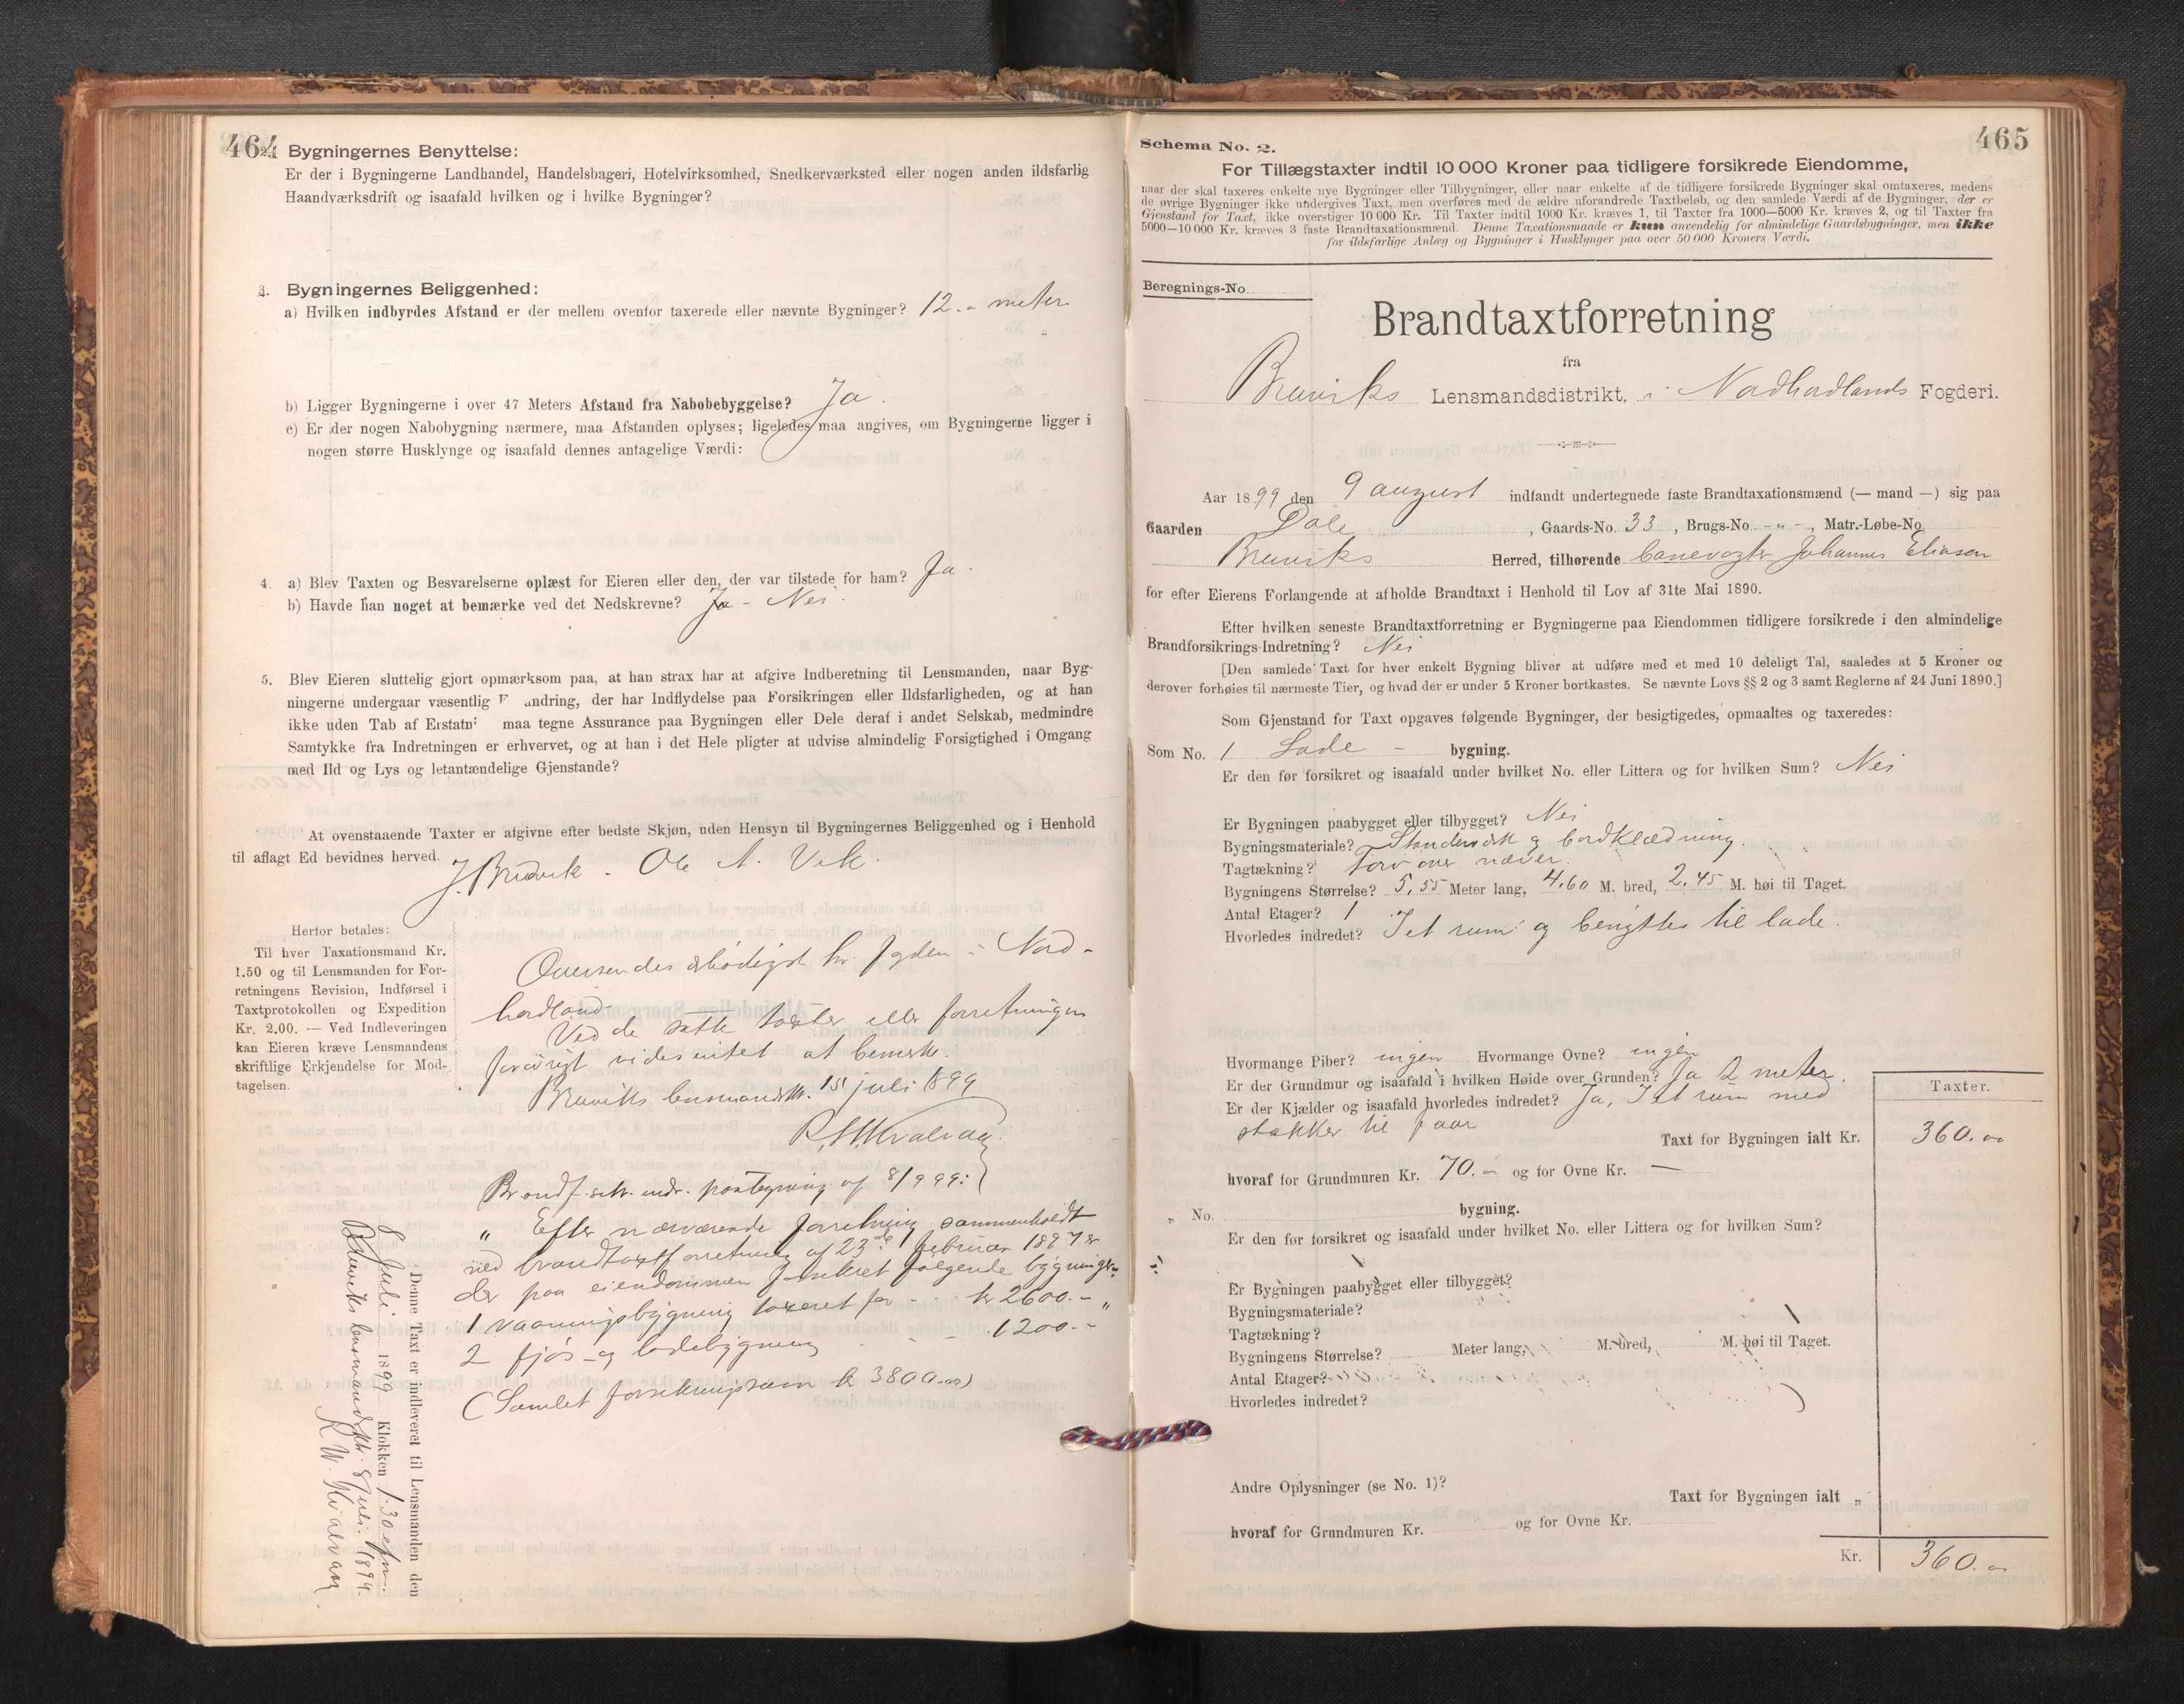 464
2. Bygningernes Benyttelse:
Er der i Bygningerne Landhandel, Handelsbageri, Hotelvirksomhed, Snedkerværksted eller nogen anden ildsfarlig
Haandværksdrift og isaafald hvilken og i hvilke Bygninger?
3. Bygningernes Beliggenhed:
a) Hvilken indbyrdes Afstand er der mellem ovenfor taxerede eller nævnte Bygninger? 12.- meter
b) Ligger Bygningerne i over 47 Meters Afstand fra Nabobebyggelse? Ja.
c) Er der nogen Nabobygning nærmere, maa Afstanden oplyses; ligeledes maa angives, om Bygningerne ligger i
nogen større Husklynge og isaafald dennes antagelige Værdi:
4. a) Blev Taxten og Besvarelserne oplæst for Eieren eller den, der var tilstede for ham? Ja.
b) Havde han noget at bemærke ved det Nedskrevne? Ja - Nei.
5. Blev Eieren sluttelig gjort opmærksom paa, at han strax har at afgive Indberetning til Lensmanden, naar Byg-
ningerne undergaar væsentlig F andring, der har Indflydelse paa Forsikringen eller Ildsfarligheden, og at han
ikke uden Tab af Erstatn maa tegne Assurance paa Bygningen eller Dele deraf i andet Selskab, medmindre
Samtykke fra Indretningen er erhvervet, og at han i det Hele pligter at udvise almindelig Forsigtighed i Omgang
med Ild og Lys og letantændelige Gjenstande?
At ovenstaaende Taxter er afgivne efter bedste Skjøn, uden Hensyn til Bygningernes Beliggenhed og i Henhold
til aflagt Ed bevidnes herved.
J. Bruvik. Ole A. Vik.
Herfor betales:
Til hver Taxationsmand Kr.
1.50 og til Lensmanden for For-
retningens Revision, Indførsel i
Taxtprotokollen og Expedition
Kr. 2.00. — Ved Indleveringen
kan Eieren kræve Lensmandens
skriftlige Erkjendelse for Mod-
tagelsen.
Oversendes ærbødigst hr. fogden i Nord-
hordland
Ved de satte taxter eller forretningen
forøvrigt vides intet at bemerke.
Bruviks lensmandsk. 15 juli 1899
Brandf. skr. andr. paategning af 8/9 99:
" Efter nærværende forretning sammenholdt
med brandtaxtforretning af 23de februar 1897 er
der paa eiendommen forsikret følgende bygninger:
1 vaaningsbygning taxeret for - - kr 2600.-
2 fjøs- og ladebygning - - 1200.- "
(Samlet forsikringssum kr 3800.00)
Denne Taxt er indleveret til Lensmanden den
8 Juli 1899 Klokken 1.30 efm.
Bruviks lensmandsk. 8 Juli 1899.
465
Schema No. 2.
For Tillægstaxter indtil 10 000 Kroner paa tidligere forsikrede Eiendomme,
naar der skal taxeres enkelte nye Bygninger eller Tilbygninger, eller naar enkelte af de tidligere forsikrede Bygninger skal omtaxeres, medens
de øvrige Bygninger ikke undergives Taxt, men overføres med de ældre uforandrede Taxtbeløb, og den samlede Værdi af de Bygninger, der er
Gjenstand for Taxt, ikke overstiger 10 000 Kr. Til Taxter indtil 1000 Kr. kræves 1, til Taxter fra 1000—5000 Kr. kræves 2, og til Taxter fra
5000—10 000 Kr. kræves 3 faste Brandtaxationsmænd. Denne Taxationsmaade er kun anvendelig for almindelige Gaardsbygninger, men ikke
for ildsfarlige Anlæg og Bygninger i Husklynger paa over 50 000 Kroners Værdi.
Beregnings-No.
Brandtaxtforretning
fra
Bruviks Lensmandsdistrikt, i Nordhordlands Fogderi.
Aar 1899 den 9 august indfandt undertegnede faste Brandtaxationsmænd (— mand —) sig paa
Gaarden Dale, Gaards-No. 33, Brugs-No. -"-, Matr.-Løbe-No.
Bruviks Herred, tilhørende banevogter Johannes Eliasen
for efter Eierens Forlangende at afholde Brandtaxt i Henhold til Lov af 31te Mai 1890.
Efter hvilken seneste Brandtaxtforretning er Bygningerne paa Eiendommen tidligere forsikrede i den almindelige
Brandforsikrings-Indretning? Nei
[Den samlede Taxt for hver enkelt Bygning bliver at udføre med et med 10 deleligt Tal, saaledes at 5 Kroner og
derover forhøies til nærmeste Tier, og hvad der er under 5 Kroner bortkastes. Se nævnte Lovs §§ 2 og 3 samt Reglerne af 24 Juni 1890.]
Som Gjenstand for Taxt opgaves følgende Bygninger, der besigtigedes, opmaaltes og taxeredes:
Som No. 1 Lade - bygning.
Er den før forsikret og isaafald under hvilket No. eller Littera og for hvilken Sum? Nei
Er Bygningen paabygget eller tilbygget? Nei
Bygningsmateriale? Standerverk og bordklædning.
Tagtækning? Torv over næver.
Bygningens Størrelse? 5,55 Meter lang, 4.60 M. bred, 2.45 M. høi til Taget.
Antal Etager? 1
Hvorledes indredet? I et rum og benyttes til lade.
Hvormange Piber? ingen Hvormange Ovne? ingen
Er der Grundmur og isaafald i hvilken Høide over Grunden? Ja 2 meter.
Er der Kjælder og isaafald hvorledes indredet? Ja, I et rum med
stakker til faar
Taxter.
Taxt for Bygningen ialt Kr. 360.00
hvoraf for Grundmuren Kr. 70.00 og for Ovne Kr. —
" No. bygning.
Er den før forsikret og isaafald under hvilket No. eller Littera og for hvilken Sum?
Er Bygningen paabygget eller tilbygget?
Bygningsmateriale?
Tagtækning?
Bygningens Størrelse? Meter lang, M. bred, M. høi til Taget.
Antal Etager?
Hvorledes indredet?
Andre Oplysninger (se No. 1)?
Taxt for Bygningen ialt "
hvoraf for Grundmuren Kr. og for Ovne Kr.
Kr. 360.00